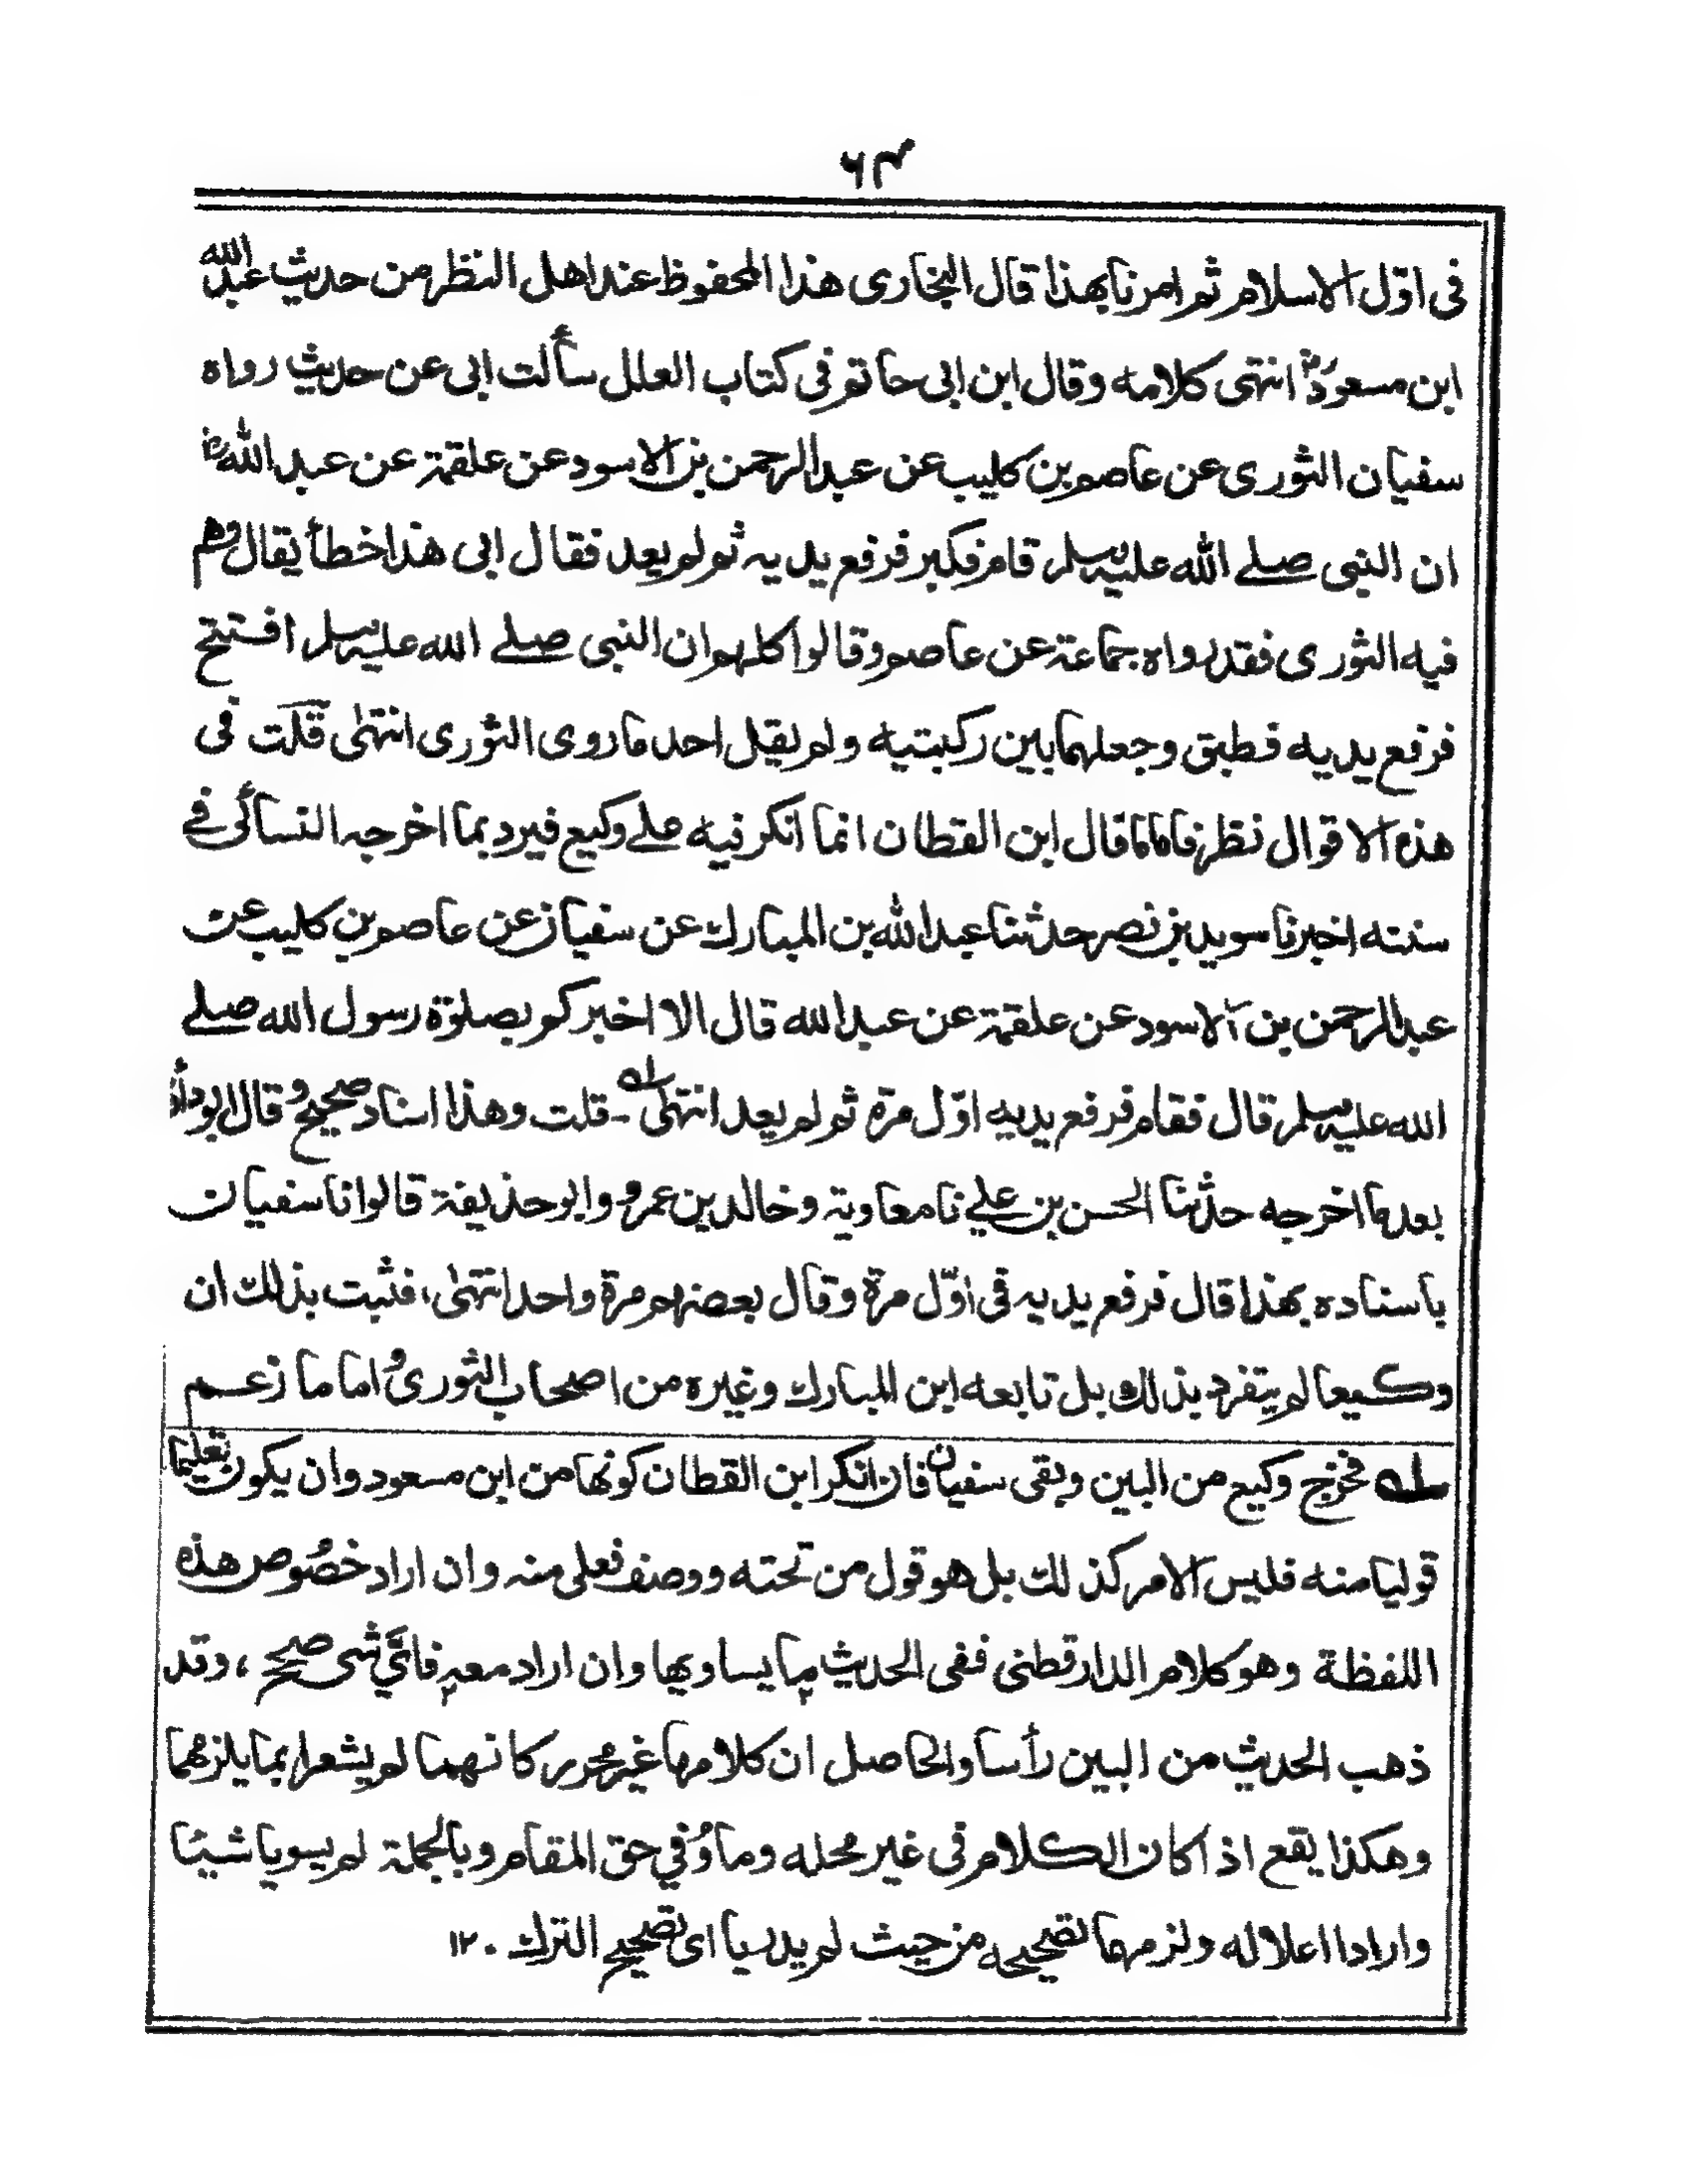 ۶۳
فی اوّل الاسلام ثم امرنا بهذا قال البخاری هذا المحفوظ عند اهل النظر من حدیث عبد الله
ابن مسعودؓ انتهی کلامه وقال ابن ابی حاتم فی کتاب العلل سألت ابی عن حدیث رواه
سفیان الثوری عن عاصم بن کلیب عن عبد الرحمن بن الاسود عن علقمة عن عبد اللهؓ
ان النبی صلے الله علیه وسلم قام فکبر فرفع یدیه ثم لم یعد فقال ابی هذا خطأ یقال وهم
فیه الثوری فقد رواه جماعة عن عاصم وقالوا کلهم ان النبی صلے الله علیه وسلم افتتح
فرفع یدیه فطبق وجعلهما بین رکبتیه ولم یقل احد ما روی الثوری انتهٰی قلت فی
هذه الاقوال نظر فاما ما قال ابن القطان انما انکر فیه علے وکیع فیرد بما اخرجه النسائی فے
سننه اخبرنا سوید بن نصر حدثنا عبد الله بن المبارك عن سفیان عن عاصم بن کلیب عن
عبد الرحمن بن الاسود عن علقمة عن عبد الله قال الا اخبرکم بصلوة رسول الله صلے
الله علیه وسلم قال فقام فرفع یدیه اوّل مرّة ثم لم یعد انتهٰی له - قلت وهذا اسناد صحیح وقال ابو داؤد
بعد ما اخرجه حدثنا الحسن بن علي نا معاویة وخالد بن عمرو وابو حذیفة قالوا نا سفیان
باسناده بهذا قال فرفع یدیه فی اوّل مرّة وقال بعضهم مرة واحد انتهٰی، فثبت بذلك ان
وکیعا لم یتفرد بذلك بل تابعه ابن المبارك وغیره من اصحاب الثوریؒ اما ما زعم
له فخرج وکیع من البین وبقی سفیان فان انکر ابن القطان کونها من ابن مسعود وان یکون تعلیما
قولیا منه فلیس الامر کذلك بل هو قول من تحته ووصف فعلی منه وان اراد خصوص هذه
اللفظة وهو کلام الدارقطنی ففی الحدیث ما یساویها وان اراد معه فایّ شی صحیح، وقد
ذهب الحدیث من البین رأسا والحاصل ان کلامهما غیر محرر کانهما لم یشعرا بما یلزمهما
وهکذا یقع اذا کان الکلام فی غیر محله وما وُفي حق المقام وبالجملة لم یسویا شیئا
وارادا اعلاله ولزمهما تصحیحه من حیث لم یدریا ای تصحیح الترك ۔ ۱۲